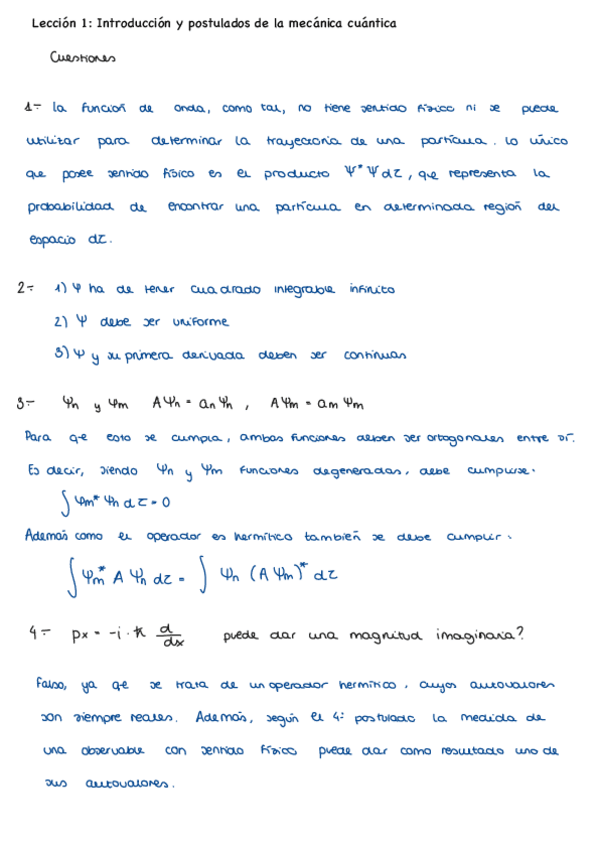 Lección 1: Introducción y postulados de la mecánica cuántica
Cuestiones
1.- La función de onda, como tal, no tiene sentido físico ni se puede
utilizar para determinar la trayectoria de una partícula. Lo único
que posee sentido físico es el producto Ψ*Ψdτ, que representa la
probabilidad de encontrar una partícula en determinada región del
espacio dτ.
2.- 1) Ψ ha de tener cuadrado integrable infinito
2) Ψ debe ser uniforme
3) Ψ y su primera derivada deben ser continuas
3.- Ψn y Ψm AΨn = an Ψn , AΨm = am Ψm
Para qe esto se cumpla, ambas funciones deben ser ortogonales entre sí.
Es decir, siendo Ψn y Ψm funciones degeneradas, debe cumplirse:
∫ Ψm* Ψn dτ = 0
Además como el operador es hermítico también se debe cumplir:
∫ Ψm* A Ψn dτ = ∫ Ψn (A Ψm)* dτ
4.- px = -i · ħ d/dx puede dar una magnitud imaginaria?
Falso, ya qe se trata de un operador hermítico, cuyos autovalores
son siempre reales. Además, según el 4º postulado la medida de
una observable con sentido físico puede dar como resultado uno de
sus autovalores.